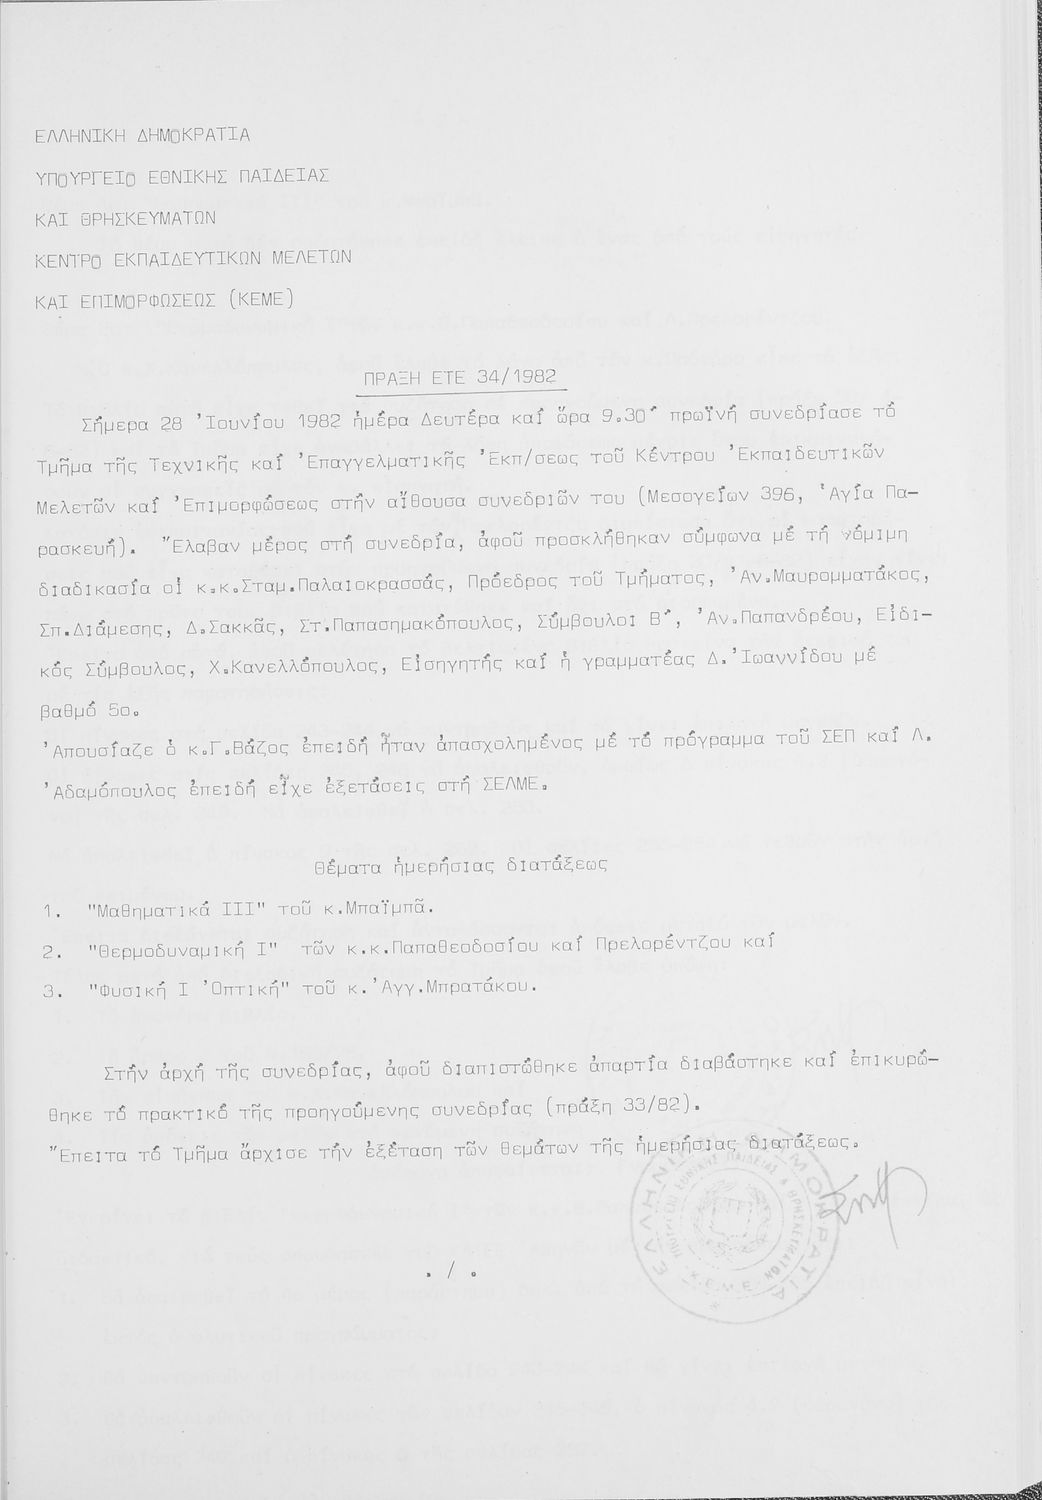 ΕΛΛΗΝΙΚΗ ΔΗΜΟΚΡΑΤΙΑ
ΥΠΟΥΡΓΕΙΟ ΕΘΝΙΚΗΣ ΠΑΙΔΕΙΑΣ
ΚΑΙ ΘΡΗΣΚΕΥΜΑΤΩΝ
ΚΕΝΤΡΟ ΕΚΠΑΙΔΕΥΤΙΚΩΝ ΜΕΛΕΤΩΝ
ΚΑΙ ΕΠΙΜΟΡΦΩΣΕΩΣ (ΚΕΜΕ)
ΠΡΑΞΗ ΕΤΕ 34/1982
Σήμερα 28 Ἰουνίου 1982 ἡμέρα Δευτέρα καί ὥρα 9.30΄ πρωϊνή συνεδρίασε τό
Τμῆμα τῆς Τεχνικῆς καί Ἐπαγγελματικῆς Ἐκπ/σεως τοῦ Κέντρου Ἐκπαιδευτικῶν
Μελετῶν καί Ἐπιμορφώσεως στήν αἴθουσα συνεδριῶν του (Μεσογείων 396, Ἁγία Πα-
ρασκευή). Ἔλαβαν μέρος στή συνεδρία, ἀφοῦ προσκλήθηκαν σύμφωνα μέ τή νόμιμη
διαδικασία οἱ κ.κ.Σταμ.Παλαιοκρασσάς, Πρόεδρος τοῦ Τμήματος, Ἀν.Μαυρομματάκος,
Σπ.Διάμεσης, Δ.Σακκᾶς, Στ.Παπασημακόπουλος, Σύμβουλοι Β΄, Ἀν.Παπανδρέου, Εἰδι-
κός Σύμβουλος, Χ.Κανελλόπουλος, Εἰσηγητής καί ἡ γραμματέας Δ.Ἰωαννίδου μέ
βαθμό 5ο.
Ἀπουσίαζε ὁ κ.Γ.Βάζος ἐπειδή ἦταν ἀπασχολημένος μέ τό πρόγραμμα τοῦ ΣΕΠ καί Λ.
Ἀδαμόπουλος ἐπειδή εἶχε ἐξετάσεις στή ΣΕΛΜΕ.
Θέματα ἡμερήσιας διατάξεως
1. "Μαθηματικά ΙΙΙ" τοῦ κ.Μπαϊμπᾶ.
2. "Θερμοδυναμική Ι" τῶν κ.κ.Παπαθεοδοσίου καί Πρελορέντζου καί
3. "Φυσική Ι Ὀπτική" τοῦ κ.Ἀγγ.Μπρατάκου.
Στήν ἀρχή τῆς συνεδρίας, ἀφοῦ διαπιστώθηκε ἀπαρτία διαβάστηκε καί ἐπικυρώ-
θηκε τό πρακτικό τῆς προηγούμενης συνεδρίας (πράξη 33/82).
Ἔπειτα τό Τμῆμα ἄρχισε τήν ἐξέταση τῶν θεμάτων τῆς ἡμερήσιας διατάξεως.
./.
ΕΛΛΗΝΙΚΗ ΔΗΜΟΚΡΑΤΙΑ
ΥΠΟΥΡΓΕΙΟ ΕΘΝΙΚΗΣ ΠΑΙΔΕΙΑΣ & ΘΡΗΣΚΕΥΜΑΤΩΝ
Κ.Ε.Μ.Ε.